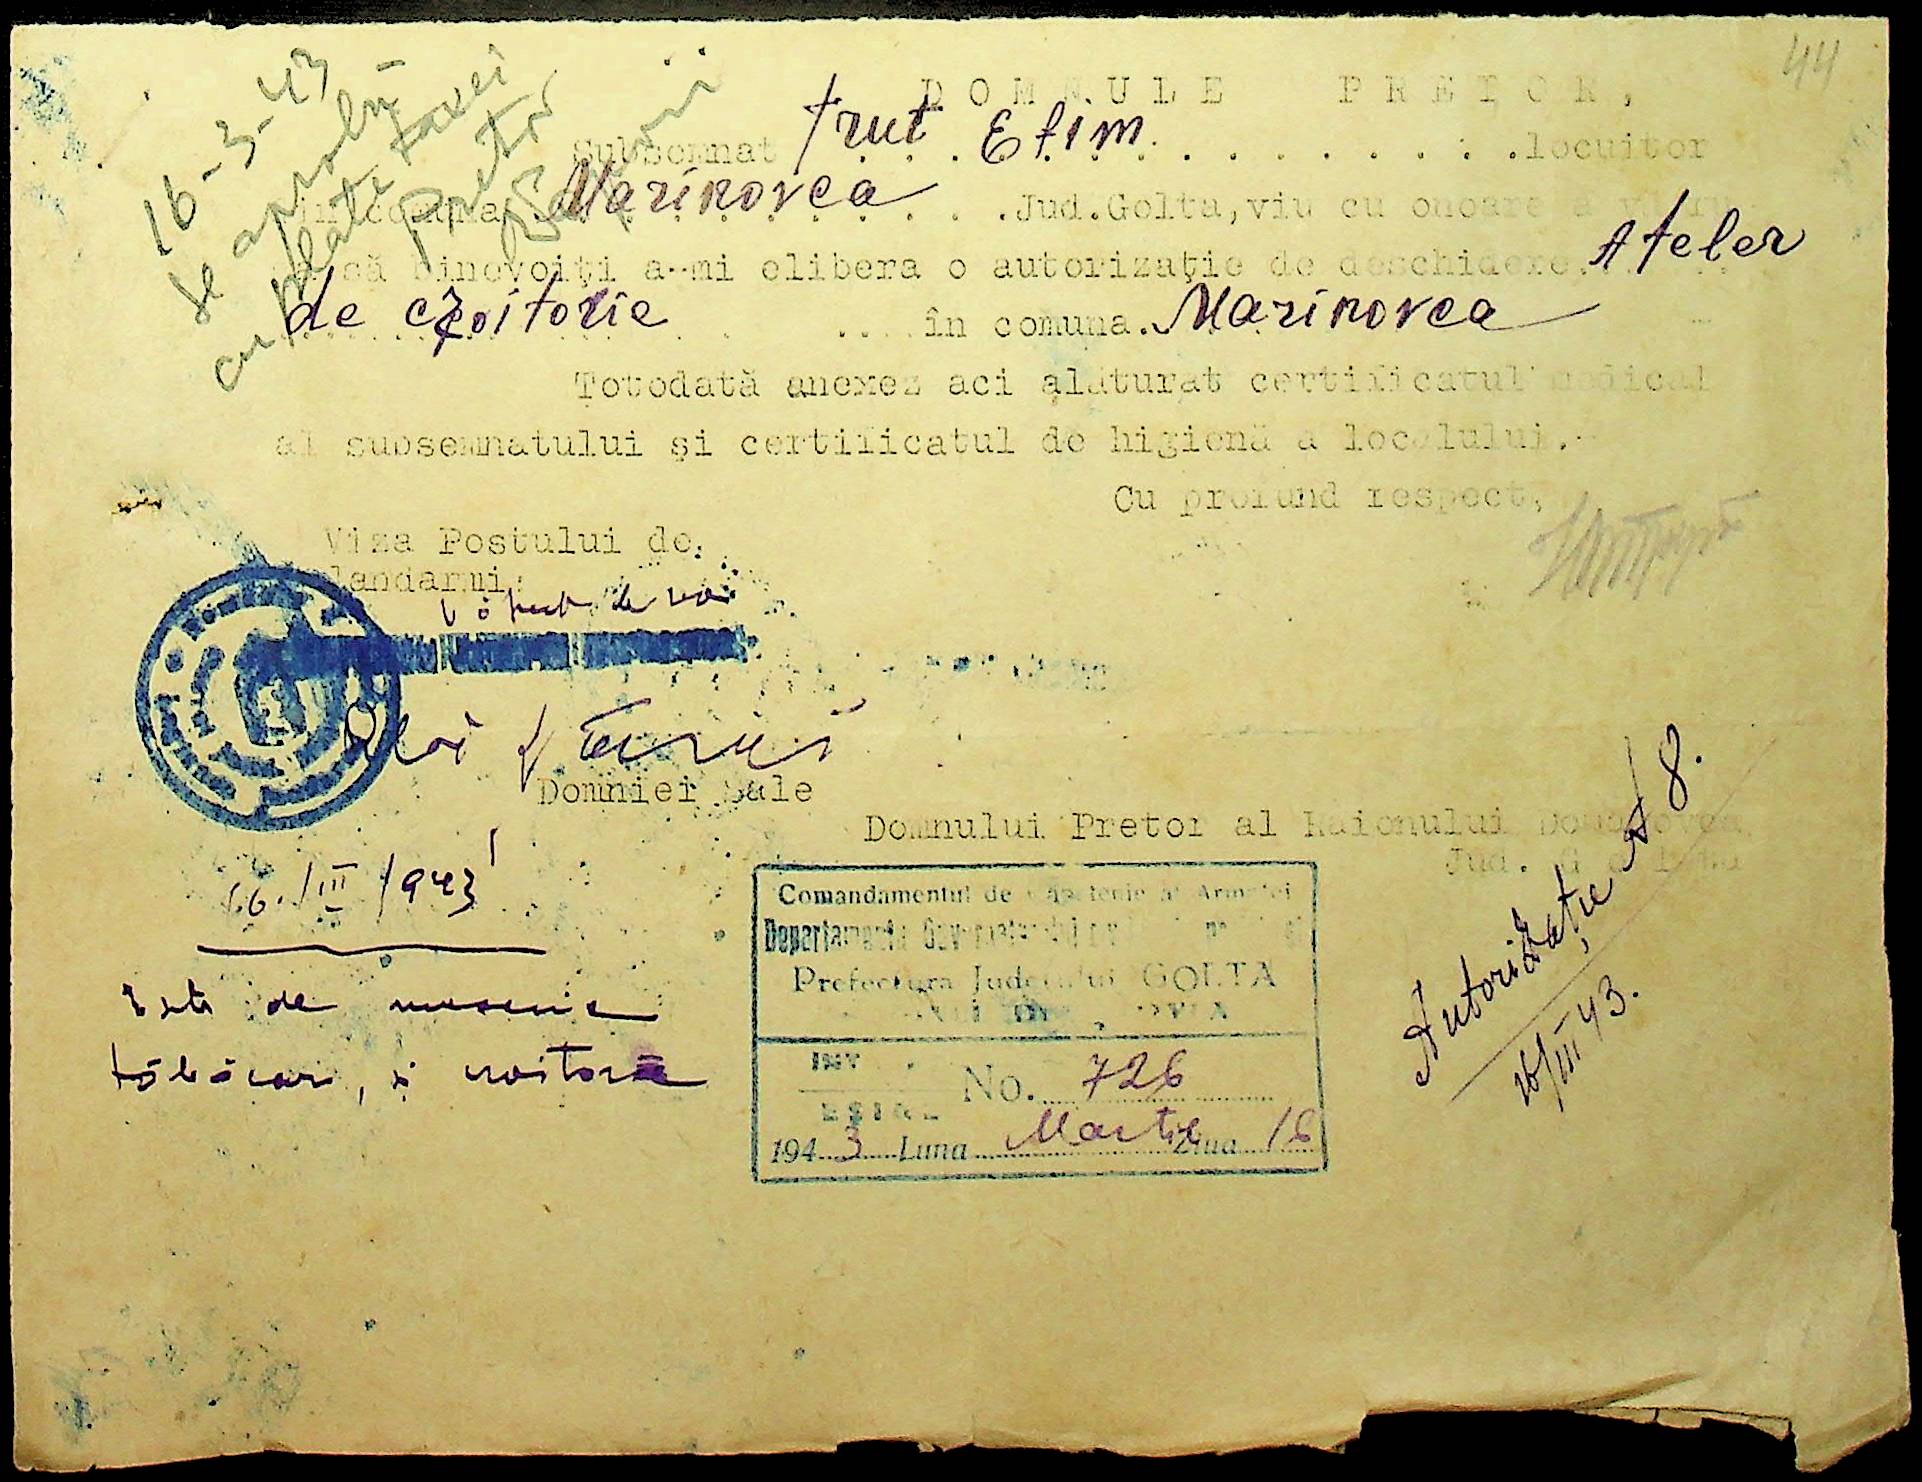 44
16-3-43
se aprobă
cu plate taxei
Pretor
DOMNULE PRETOR,
Subsemnat Trut Efim . . . . . . . . . .locuitor
în comuna Marinovca . . .Jud.Golta, viu cu onoare a vă ru
să binevoiţi a-mi elibera o autorizaţie de deschidere. Ateler
de croitorie .... în comuna. Marinovca
Totodată anexez aci alăturat certificatul medical
al subsemnatului şi certificatul de higienă a localului.-
Cu profund respect,
Viza Postului de
Jandarmi:
Văzut de noi
Domniei Sale
Domnului Pretor al Raionului
Jud. Golta
16./III/943
Este de meserie
tăbăcar, şi croitorie
Comandamentul de Căpetenie al Armatei
Prefectura Judeţului GOLTA
No. 726
IEŞIRE
1943 Luna Martie Ziua 16
Autorizaţie N 8.
16/III 43.